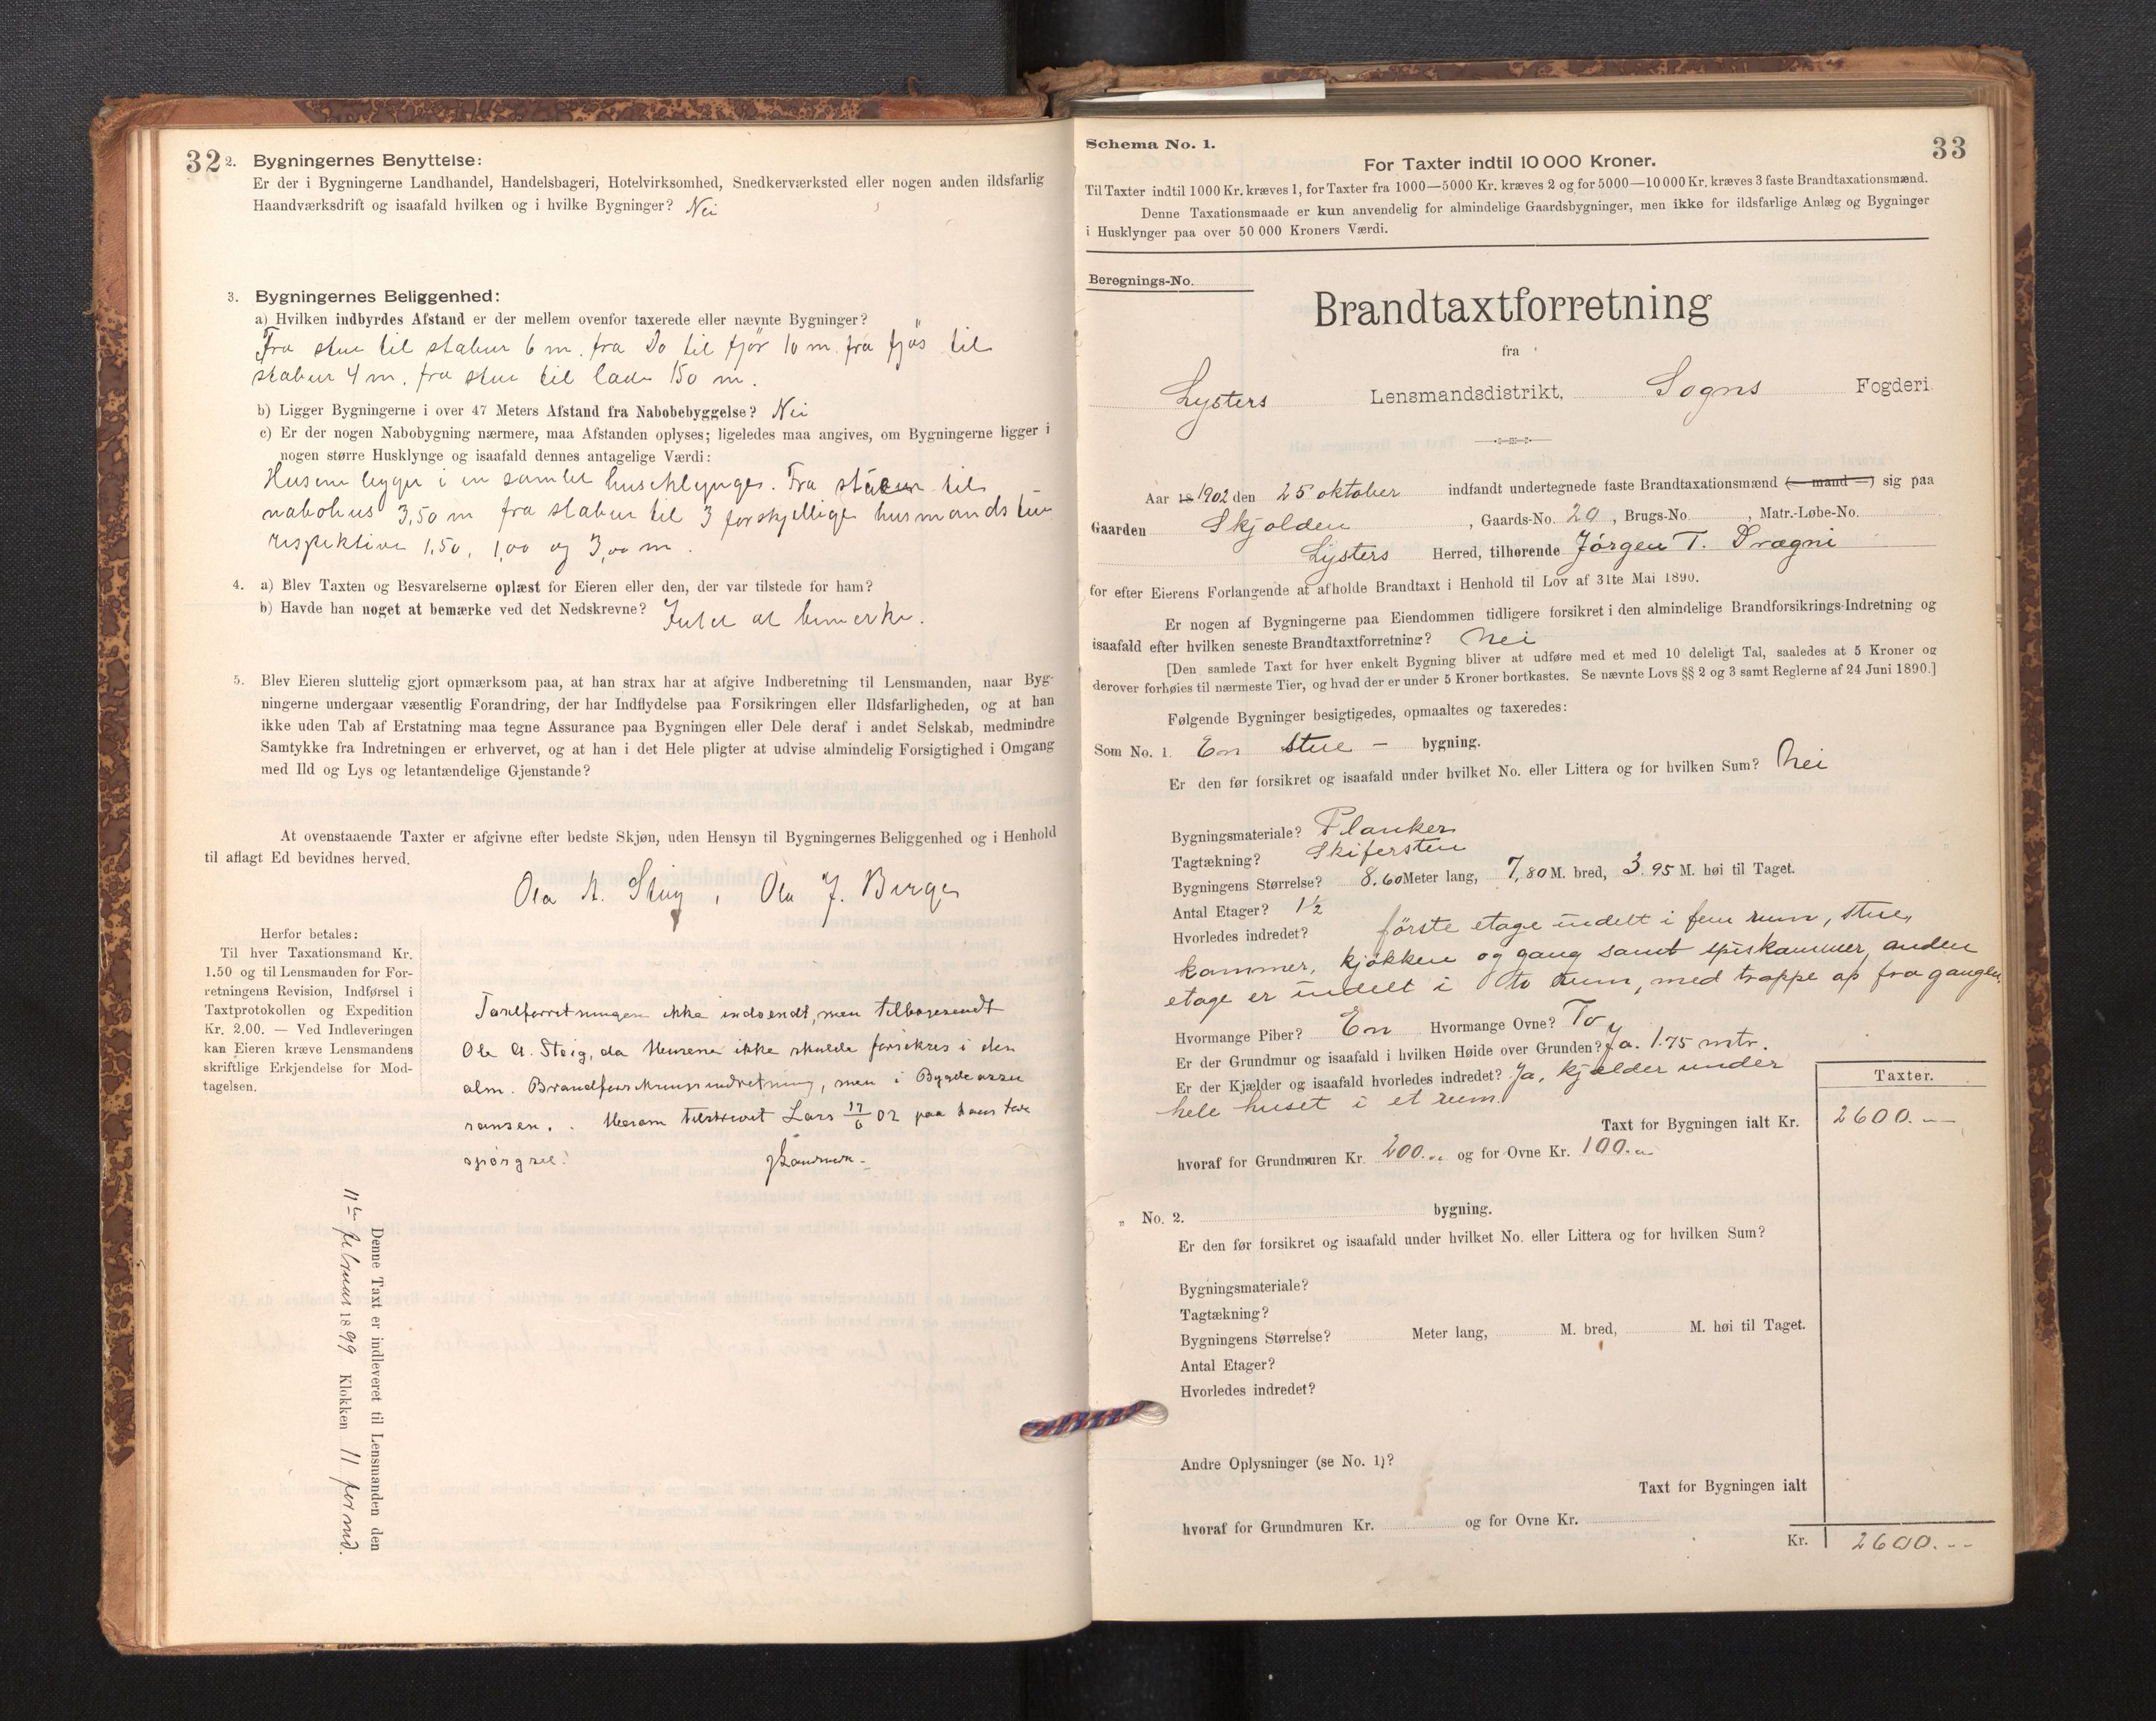 32
2. Bygningernes Benyttelse:
Er der i Bygningerne Landhandel, Handelsbageri, Hotelvirksomhed, Snedkerværksted eller nogen anden ildsfarlig
Haandværksdrift og isaafald hvilken og i hvilke Bygninger? Nei
3. Bygningernes Beliggenhed:
a) Hvilken indbyrdes Afstand er der mellem ovenfor taxerede eller nævnte Bygninger?
Fra stue til stabur 6 m. fra Do til fjös 10 m fra fjös til
stabur 4 m. fra stue til lade 150 m.
b) Ligger Bygningerne i over 47 Meters Afstand fra Nabobebyggelse? Nei
c) Er der nogen Nabobygning nærmere, maa Afstanden oplyses; ligeledes maa angives, om Bygningerne ligger i
nogen større Husklynge og isaafald dennes antagelige Værdi:
Husene ligger i en samlet husklynge. Fra stabur til
nabohus 3,50 m fra stabur til 3 forskjellige husmandstuer
respektive 1,50, 1,00 og 3,00 m.
4. a) Blev Taxten og Besvarelserne oplæst for Eieren eller den, der var tilstede for ham?
b) Havde han noget at bemærke ved det Nedskrevne? Intet at bemerke.
5. Blev Eieren sluttelig gjort opmærksom paa, at han strax har at afgive Indberetning til Lensmanden, naar Byg-
ningerne undergaar væsentlig Forandring, der har Indflydelse paa Forsikringen eller Ildsfarligheden, og at han
ikke uden Tab af Erstatning maa tegne Assurance paa Bygningen eller Dele deraf i andet Selskab, medmindre
Samtykke fra Indretningen er erhvervet, og at han i det Hele pligter at udvise almindelig Forsigtighed i Omgang
med Ild og Lys og letantændelige Gjenstande?
At ovenstaaende Taxter er afgivne efter bedste Skjøn, uden Hensyn til Bygningernes Beliggenhed og i Henhold
til aflagt Ed bevidnes herved.
Ola A. Steig, Ola J. Berge
Herfor betales:
Til hver Taxationsmand Kr.
1.50 og til Lensmanden for For-
retningens Revision, Indførsel i
Taxtprotokollen og Expedition
Kr. 2.00. — Ved Indleveringen
kan Eieren kræve Lensmandens
skriftlige Erkjendelse for Mod-
tagelsen.
Taxtforretningen ikke indsendt, men tilbagesendt
Ole A. Steig, da Husene ikke skulde forsikres i den
alm. Brandforsikringsindretning, men i Bygdeassu
ransen. Herom tilskrevet Lars 17/6 02 paa hans fore
spørgsel.
Denne Taxt er indleveret til Lensmanden den
11te februar 1899 Klokken 11 formd.
33
Schema No. 1.
For Taxter indtil 10 000 Kroner.
Til Taxter indtil 1000 Kr. kræves 1, for Taxter fra 1000—5000 Kr. kræves 2 og for 5000—10 000 Kr. kræves 3 faste Brandtaxationsmænd.
Denne Taxationsmaade er kun anvendelig for almindelige Gaardsbygninger, men ikke for ildsfarlige Anlæg og Bygninger
i Husklynger paa over 50 000 Kroners Værdi.
Beregnings-No.
Brandtaxtforretning
fra
Lysters Lensmandsdistrikt, Sogns Fogderi
Aar 18 1902 den 25 oktober indfandt undertegnede faste Brandtaxationsmænd (— mand —) sig paa
Gaarden Skjolden, Gaards-No. 20, Brugs-No. , Matr.-Løbe-No.
Lysters Herred, tilhørende Jórgen T. Drægni
for efter Eierens Forlangende at afholde Brandtaxt i Henhold til Lov af 31te Mai 1890.
Er nogen af Bygningerne paa Eiendommen tidligere forsikret i den almindelige Brandforsikrings-Indretning og
isaafald efter hvilken seneste Brandtaxtforretning? Nei
[Den samlede Taxt for hver enkelt Bygning bliver at udføre med et med 10 deleligt Tal, saaledes at 5 Kroner og
derover forhøies til nærmeste Tier, og hvad der er under 5 Kroner bortkastes. Se nævnte Lovs §§ 2 og 3 samt Reglerne af 24 Juni 1890.]
Følgende Bygninger besigtigedes, opmaaltes og taxeredes:
Som No. 1. En Stue — bygning.
Er den før forsikret og isaafald under hvilket No. eller Littera og for hvilken Sum? Nei
Bygningsmateriale? Planker
Tagtækning? Skifersten
Bygningens Størrelse? 8.60 Meter lang, 7,80 M. bred, 3.95 M. høi til Taget.
Antal Etager? 1½
Hvorledes indredet? förste etage indelt i fem rum, stue,
kammer, kjökken og gang samt spiskammer, anden
etage er indelt i to rum, med trappe op fra gangen.
Hvormange Piber? En Hvormange Ovne? To
Er der Grundmur og isaafald i hvilken Høide over Grunden? Ja. 1.75 mtr.
Er der Kjælder og isaafald hvorledes indredet? Ja, kjælder under
hele huset i et rum.
Taxter.
Taxt for Bygningen ialt Kr. 2600.--
hvoraf for Grundmuren Kr. 200.. og for Ovne Kr. 100..
„ No. 2. bygning.
Er den før forsikret og isaafald under hvilket No. eller Littera og for hvilken Sum?
Bygningsmateriale?
Tagtækning?
Bygningens Størrelse? Meter lang, M. bred, M. høi til Taget.
Antal Etager?
Hvorledes indredet?
Andre Oplysninger (se No. 1)?
Taxt for Bygningen ialt
hvoraf for Grundmuren Kr. og for Ovne Kr.
Kr. 2600.--